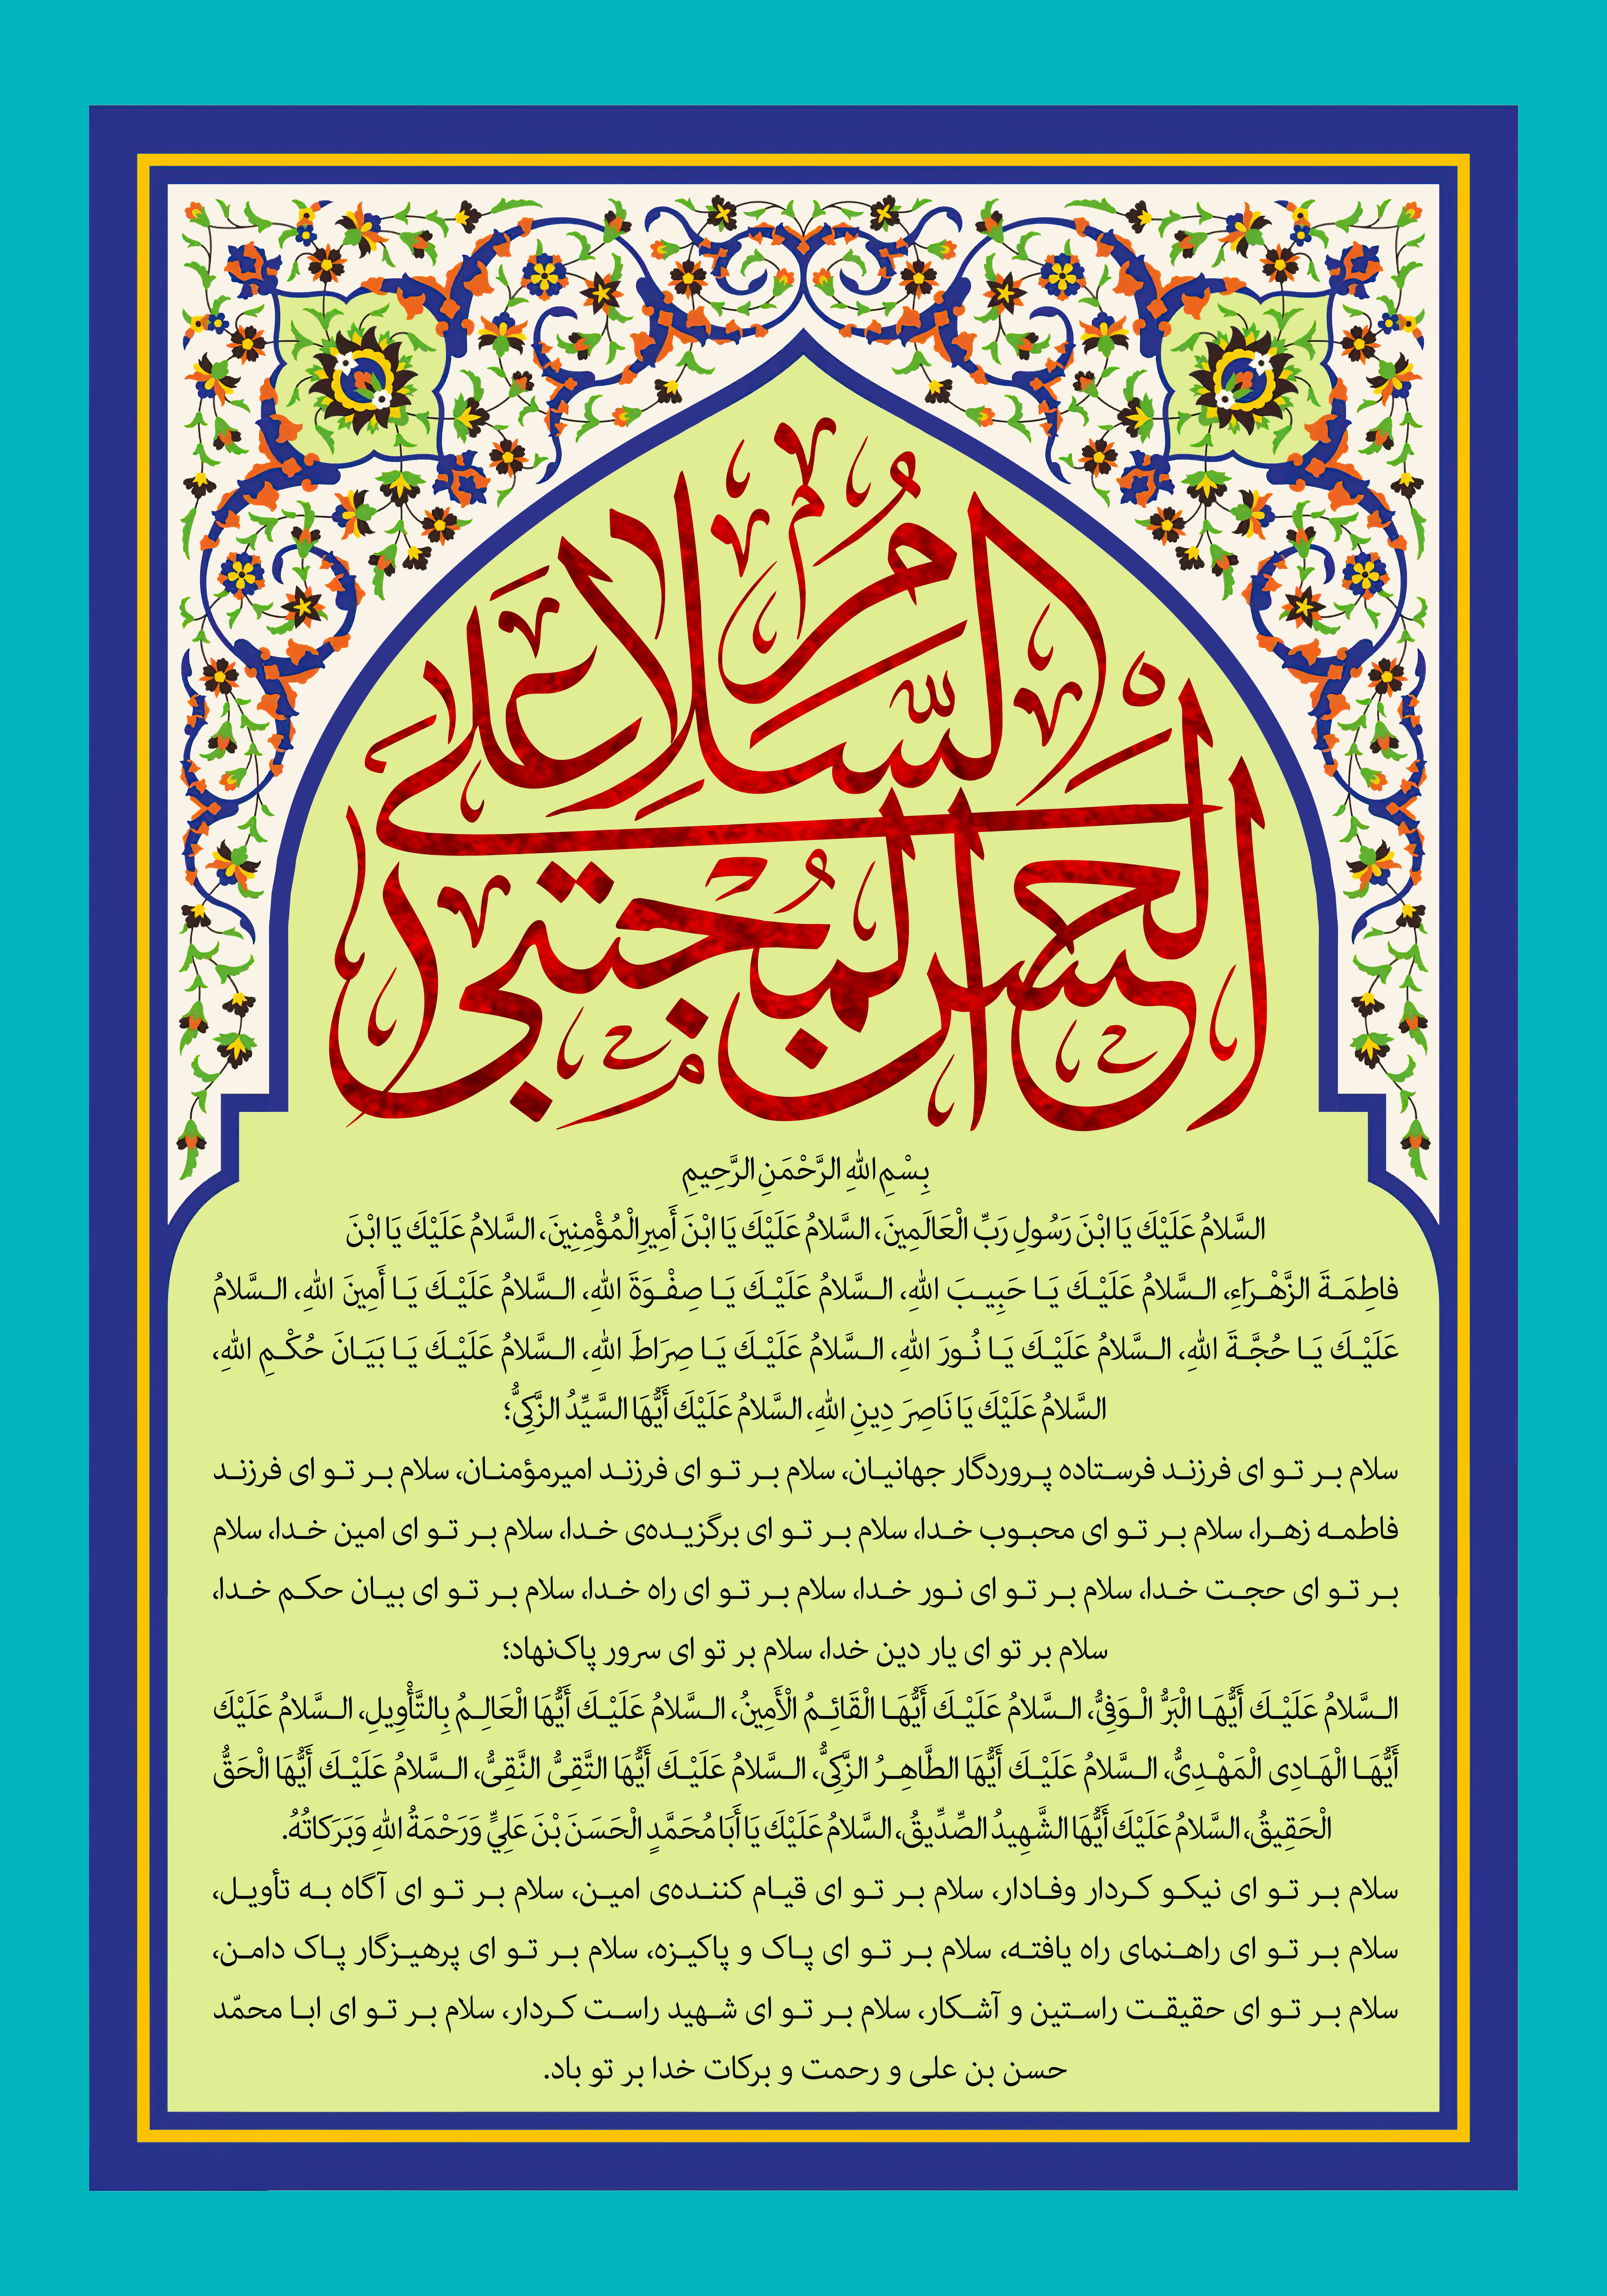 السَّلامُ عَلَى
الْحَسَنِ الْمُجْتَبى
بِسْمِ اللهِ الرَّحْمَنِ الرَّحِيمِ
السَّلامُ عَلَيْكَ يَا ابْنَ رَسُولِ رَبِّ الْعَالَمِينَ، السَّلامُ عَلَيْكَ يَا ابْنَ أَمِيرِ الْمُؤْمِنِينَ، السَّلامُ عَلَيْكَ يَا ابْنَ
فاطِمَةَ الزَّهْرَاءِ، السَّلامُ عَلَيْكَ يَا حَبِيبَ اللهِ، السَّلامُ عَلَيْكَ يَا صِفْوَةَ اللهِ، السَّلامُ عَلَيْكَ يَا أَمِينَ اللهِ، السَّلامُ
عَلَيْكَ يَا حُجَّةَ اللهِ، السَّلامُ عَلَيْكَ يَا نُورَ اللهِ، السَّلامُ عَلَيْكَ يَا صِرَاطَ اللهِ، السَّلامُ عَلَيْكَ يَا بَيَانَ حُكْمِ اللهِ،
السَّلامُ عَلَيْكَ يَا نَاصِرَ دِينِ اللهِ، السَّلامُ عَلَيْكَ أَيُّهَا السَّيِّدُ الزَّكِىُّ؛
سلام بر تو ای فرزند فرستاده پروردگار جهانیان، سلام بر تو ای فرزند امیرمؤمنان، سلام بر تو ای فرزند
فاطمه زهرا، سلام بر تو ای محبوب خدا، سلام بر تو ای برگزیده‌ی خدا، سلام بر تو ای امین خدا، سلام
بر تو ای حجت خدا، سلام بر تو ای نور خدا، سلام بر تو ای راه خدا، سلام بر تو ای بیان حکم خدا،
سلام بر تو ای یار دین خدا، سلام بر تو ای سرور پاک‌نهاد؛
السَّلامُ عَلَيْكَ أَيُّهَا الْبَرُّ الْوَفِىُّ، السَّلامُ عَلَيْكَ أَيُّهَا الْقَائِمُ الْأَمِينُ، السَّلامُ عَلَيْكَ أَيُّهَا الْعَالِمُ بِالتَّأْوِيلِ، السَّلامُ عَلَيْكَ
أَيُّهَا الْهَادِى الْمَهْدِىُّ، السَّلامُ عَلَيْكَ أَيُّهَا الطَّاهِرُ الزَّكِىُّ، السَّلامُ عَلَيْكَ أَيُّهَا التَّقِىُّ النَّقِىُّ، السَّلامُ عَلَيْكَ أَيُّهَا الْحَقُّ
الْحَقِيقُ، السَّلامُ عَلَيْكَ أَيُّهَا الشَّهِيدُ الصِّدِّيقُ، السَّلامُ عَلَيْكَ يَا أَبَا مُحَمَّدٍ الْحَسَنَ بْنَ عَلِيٍّ وَرَحْمَةُ اللهِ وَبَرَكاتُهُ.
سلام بر تو ای نیکو کردار وفادار، سلام بر تو ای قیام کننده‌ی امین، سلام بر تو ای آگاه به تأویل،
سلام بر تو ای راهنمای راه یافته، سلام بر تو ای پاک و پاکیزه، سلام بر تو ای پرهیزگار پاک دامن،
سلام بر تو ای حقیقت راستین و آشکار، سلام بر تو ای شهید راست کردار، سلام بر تو ای ابا محمّد
حسن بن علی و رحمت و برکات خدا بر تو باد.